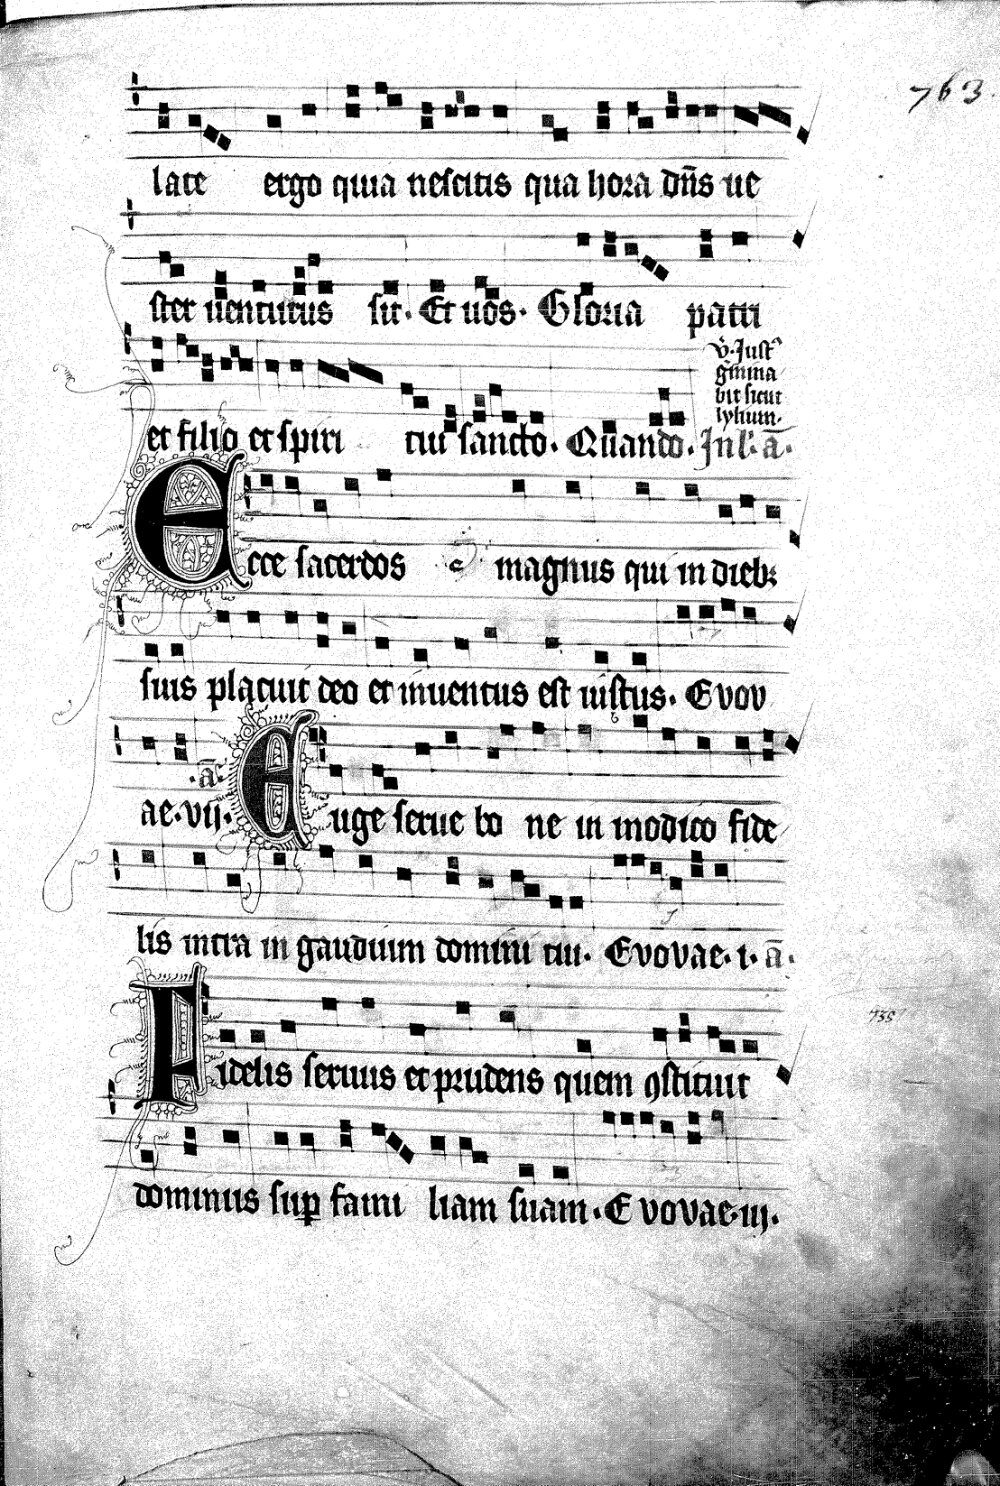 763.
late ergo quia nescitis qua hora dn̄s ue
ster uenturus sit. Et uos. Gloria patri
v̄. Just᷒
g̅mina
bit sicut
lylium.
et filio et spiri tui sancto. Quando. Jn l'. ā.
Ecce sacerdos magnus qui in dieb3
suis placuit deo et inuentus est iustus. Evov
ae. vij. .ā. Euge serue bo ne in modico fide
lis intra in gaudium domini tui. Evovae. i. ā.
735
Fidelis seruus et prudens quem ꝯstituit
dominus sup̱ fami liam suam. E vovae. iij.